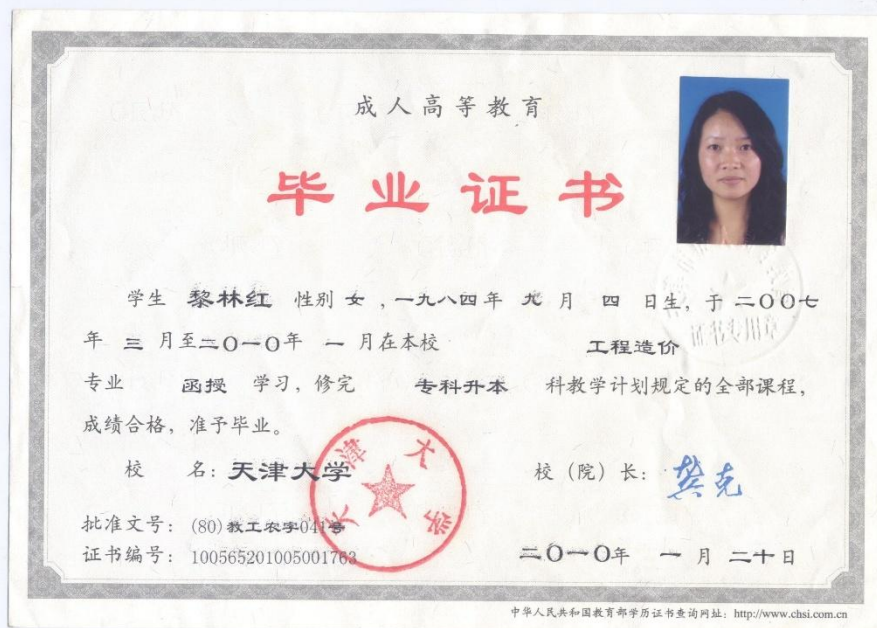 成人高等教育
毕业证书
学生 黎林红 性别 女 ,一九八四年 九 月 四 日生, 于 二〇〇七
年 三 月至二〇一〇年 一 月在本校 工程造价
专业 函授 学习, 修完 专科升本 科教学计划规定的全部课程,
成绩合格, 准予毕业。
校 名: 天津大学
天津大学
校（院）长: 樊克
批准文号: (80)教工农字041号
证书编号: 100565201005001763
二〇一〇年 一 月 二十日
中华人民共和国教育部学历证书查询网址: http://www.chsi.com.cn